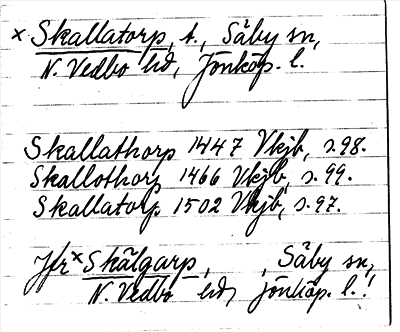 × Skallatorp, t., Säby sn,
N. Vedbo hd, Jönköp. l.
Skallathorp 1447 Vkjb, s. 98.
Skallothorp 1466 Vkjb, s. 99.
Skallatorp 1502 Vkjb, s. 97.
Jfr × Skälgarp, , Säby sn,
N. Vedbo hd, Jönköp. l.!